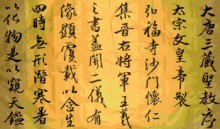 大唐三藏聖教序
太宗文皇帝製
弘福寺沙門懷仁
集晉右將軍王羲
之書蓋聞二儀有
像顯覆載以含生
四時無形潛寒暑
以化物是以窺天鑑